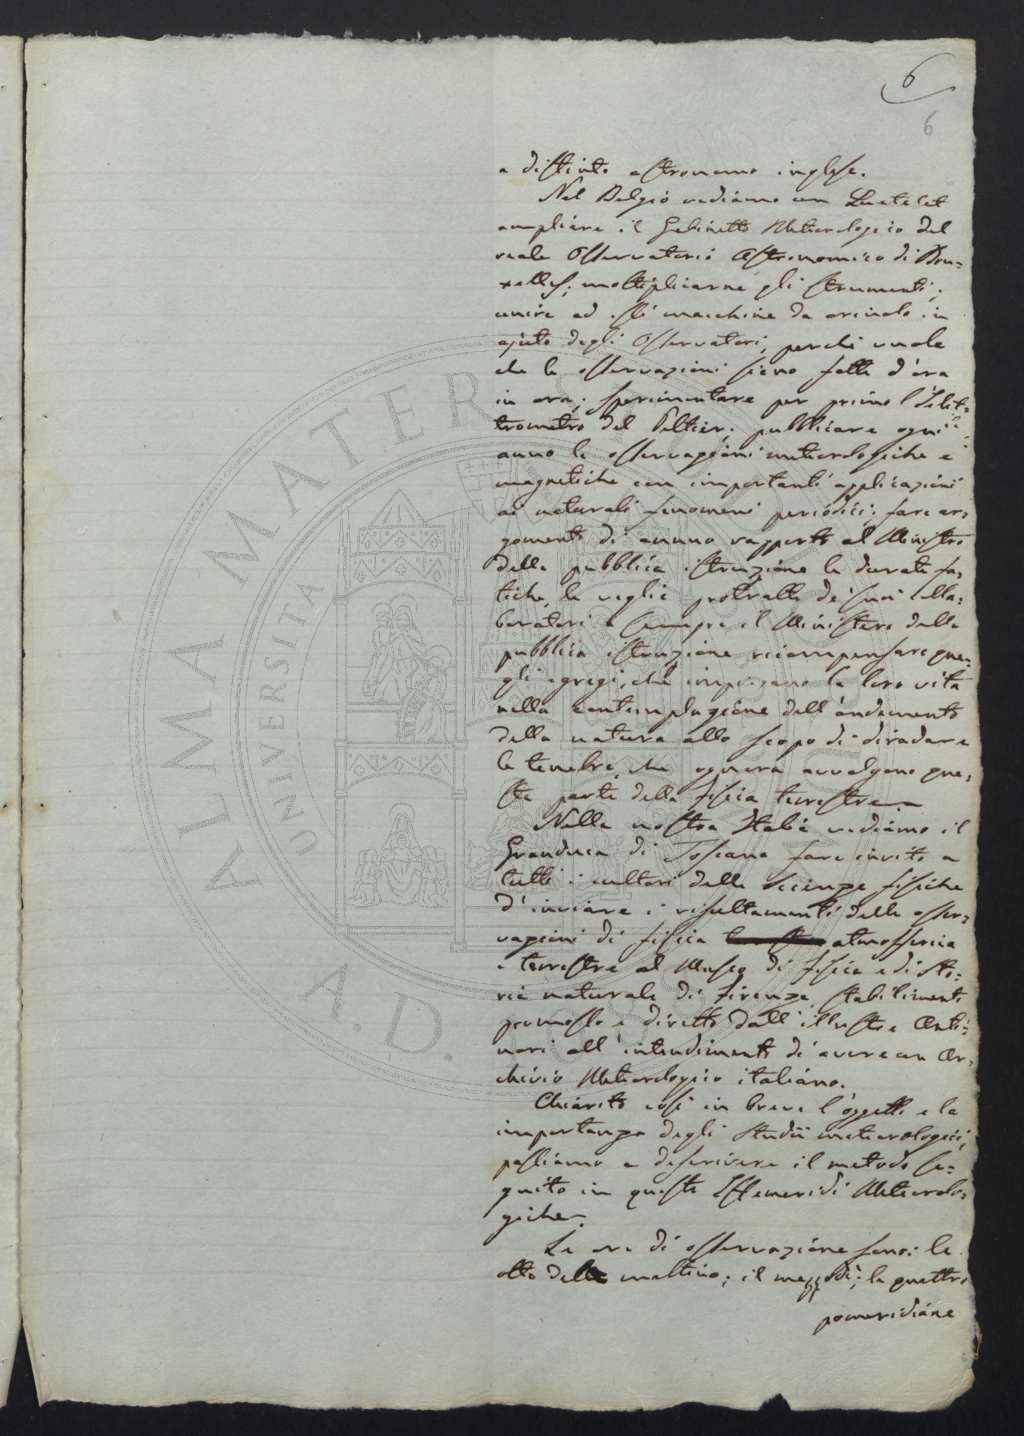 6
6
e distinto astronomo inglese.
Nel Belgio vediamo un Quetelet
ampliare il Gabinetto Meteorologico del
reale Osservatorio Astronomico di Bru-
xelles; moltiplicarne gli strumenti;
unire ad essi macchine da orivolo in
ajuto degli Osservatori, perchè vuole
che le osservazioni sieno fatte d'ora
in ora; sperimentare per primo l'Elet-
trometro del Peltier; pubblicare ogni
anno le osservazioni meteorologiche e
magnetiche con importanti applicazioni
ai naturali fenomeni periodici; fare ar-
gomento di annuo rapporto al Ministro
della pubblica istruzione le durate fa-
tiche, le veglie protratte dei suoi colla-
boratori e sempre il Ministero della
pubblica istruzione ricompensare que-
gli egregi, che impiegano la loro vita
nella contemplazione dell'andamento
della natura allo scopo di diradare
le tenebre, che ognora avvolgono que-
sta parte della fisica terrestre.
Nella nostra Italia vediamo il
Granduca di Toscana fare invito a
tutti i cultori delle Scienze fisiche
d'inviare i risultamenti delle osser-
vazioni di fisica atmosferica
e terrestre al Museo di fisica e di sto-
ria naturale di Firenze, stabilimento
promosso e diretto dall'illustre Anti-
nori all'intendimento di avere un Ar-
chivio Meteorologico italiano.
Chiarito così in breve l'oggetto e la
importanza degli studii meteorologici,
passiamo a descrivere il metodo se-
guito in queste Effemeridi Meteorolo-
giche.
Le ore di osservazione sono: le
otto della mattino; il mezzodì; le quattro
pomeridiane
ALMA MATER STUDIORUM
UNIVERSITÀ
A.D. 1088